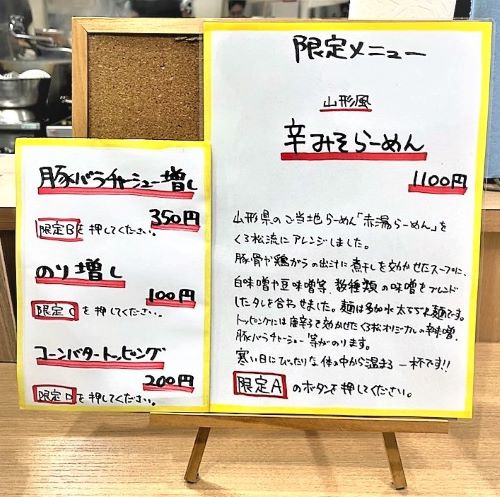 限定メニュー
山形風
辛みそらーめん
1100円
山形県のご当地らーめん「赤湯らーめん」を
くろ松流にアレンジしました。
豚骨や鶏がらの出汁に煮干しを効かせたスープに、
白味噌や豆味噌等、数種類の味噌をブレンド
したタレを合わせました。麺は多加水太ちぢれ麺です。
トッピングには唐辛子を効かせたくろ松オリジナルの辛味噌、
豚バラチャーシュー等がのります。
寒い日にぴったりな体の中から温まる一杯です!!
限定A のボタンを押してください。
豚バラチャーシュー増し
350円
限定Bを押してください。
のり増し
100円
限定Cを押してください。
コーンバタートッピング
200円
限定Dを押してください。